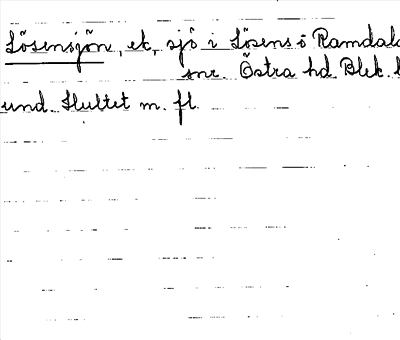 Lösensjön, ek, sjö i Lösens o Ramdala
snr. Östra hd Blek. l
und. Hultet m. fl.